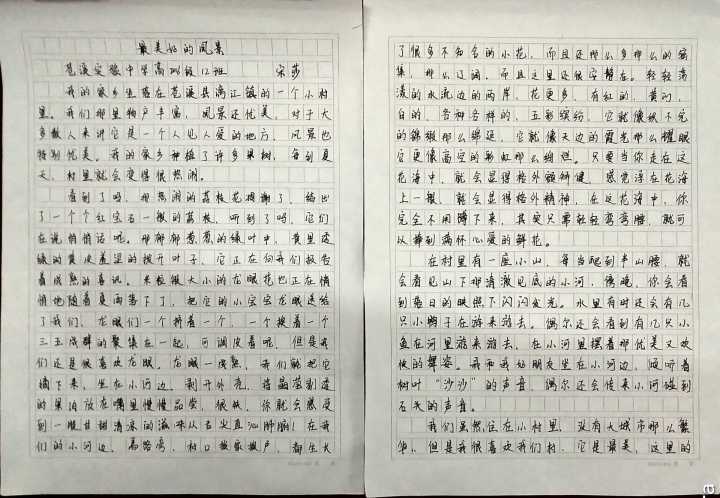 最美好的风景
苍溪实验中学高 级12班 宋莎
我的家乡生活在苍溪县漓江镇的一个小村
里。我们那里物产丰富，风景还优美。对于大
多数人来讲它是一个人见人爱的地方，风景也
特别优美。我的家乡种植了许多果树，每到夏
天，村里就会变得很热闹。
看到了吗，那热闹的荔枝花 谢了，结出
了一个个红宝石一般的荔枝，听到了吗，它们
在说悄悄话呢。那郁郁葱葱的绿叶中，黄里透
绿的黄皮羞望的拨开叶子，它正在向我们报告
着成熟的喜讯。米粒般大小的龙眼花也正在悄
悄地随着夏雨落下了，把它的小宝宝龙眼送给
了我们，龙眼们一个挤着一个，一个挨着一个
三五成群的聚集在一起，可调皮着呢，但是我
们还是很喜欢龙眼。龙眼一成熟，我们就把它
摘下来，坐在小河边，剥开外壳，将晶莹剔透
的果泊放在嘴里慢慢品尝，很快，你就会感受
到一股甘甜清凉的滋味从舌尖直沁肺脏！在我
们的小河边，马路旁，村口挨家挨户，都生长
了很多不知名的小花，而且还那么多那么的密
集，那么辽阔，而且这里还很安静在。轻轻荡
漾的水流边的两岸，花更多，有红的，黄的，
白的，各种各样的，五彩缤纷，它就像织不完
的锦缎那么绵延，它就像天边的霞光那么耀眼
它更像高空的彩虹那么绚烂。只要当你走在这
花海中，就会显得格外额娇健，感觉浸在花海
上一般，就会显得格外精神，在这花海中，你
完全不用蹲下来，其实只需轻轻弯弯腰，就可
以捧到满怀心爱的鲜花。
在村里有一座小山，每当爬到半山腰，就
会看见山下那清澈见底的小河，傍晚，你会看
到落日的映照下闪闪发光。水里有时还会有几
只小鸭子在游来游去。偶尔还会看到有几只小
鱼在河里游来游去，在小河里摆着那优美又欢
快的舞姿。我和我好朋友坐在小河边，倾听着
树叶“沙沙”的声音，偶尔还会传来小河碰到
石头的声音。
我们虽然住在小村里，没有大城市那么繁
华，但是我很喜欢我们村，它是最美，这里的